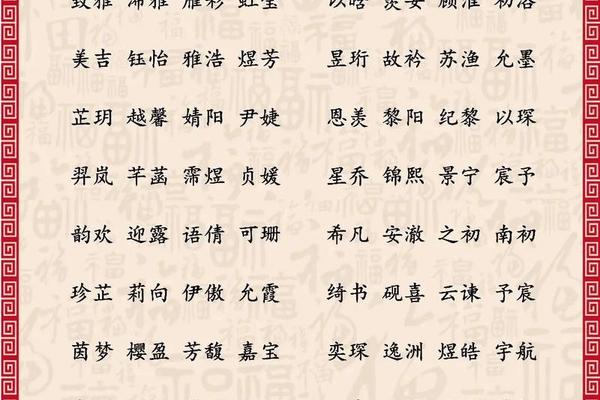 致雅 沛雅 雁彩 虹莹 以晗 羡安 顾淮 初洛
美吉 钰怡 雅浩 煜芳 昱珩 故衿 苏渔 允墨
芷玥 越馨 婧阳 尹婕 恩羡 黎阳 纪黎 以琛
羿岚 芊菡 霈煜 贞媛 星乔 锦熙 景宁 宸予
韵欢 迎露 语倩 可珊 希凡 安澈 之初 南初
珍芷 莉向 伊傲 允霞 绮书 砚喜 云谏 予宸
茵梦 樱盈 芳馥 嘉宝 奕琛 逸洲 煜皓 宇航